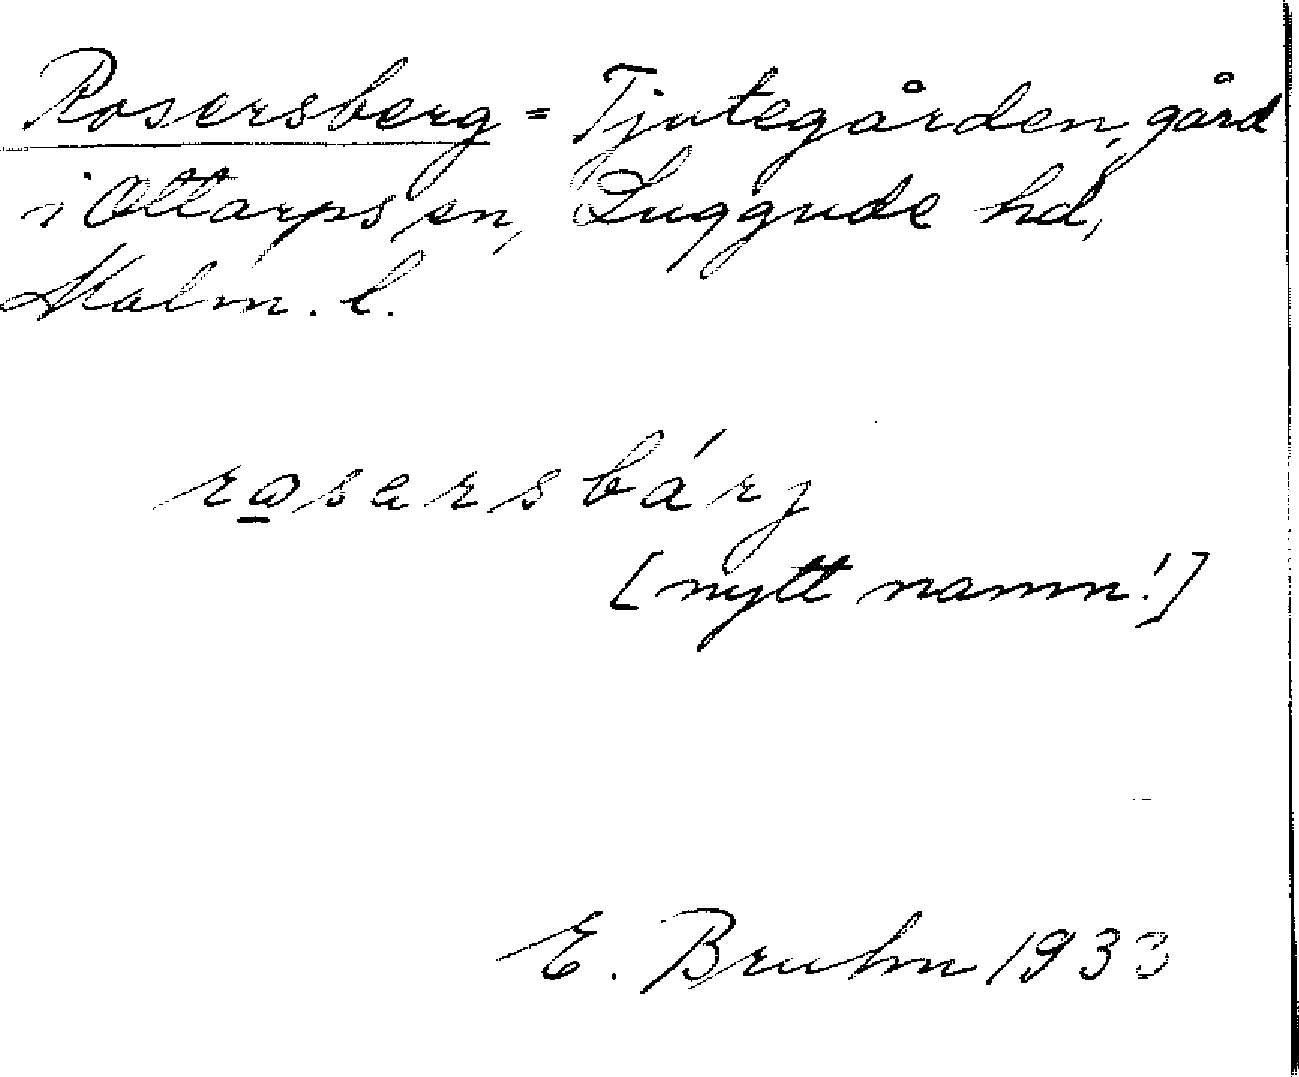 Rosersberg = Tjutegården, gård
i Ottarps sn, Luggude hd,
Malm. l.
rosarsbárj
[nytt namn!]
E. Bruhn 1933